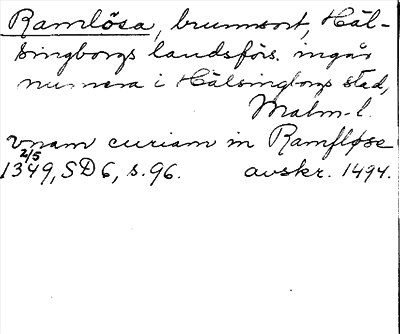 Ramlösa, brunnsort, Häl-
singborgs landsförs. ingår
numera i Hälsingborgs stad,
Malm. l.
vnam curiam in Ramfløse
2/5
1349, SD 6, s. 96. avskr. 1494.